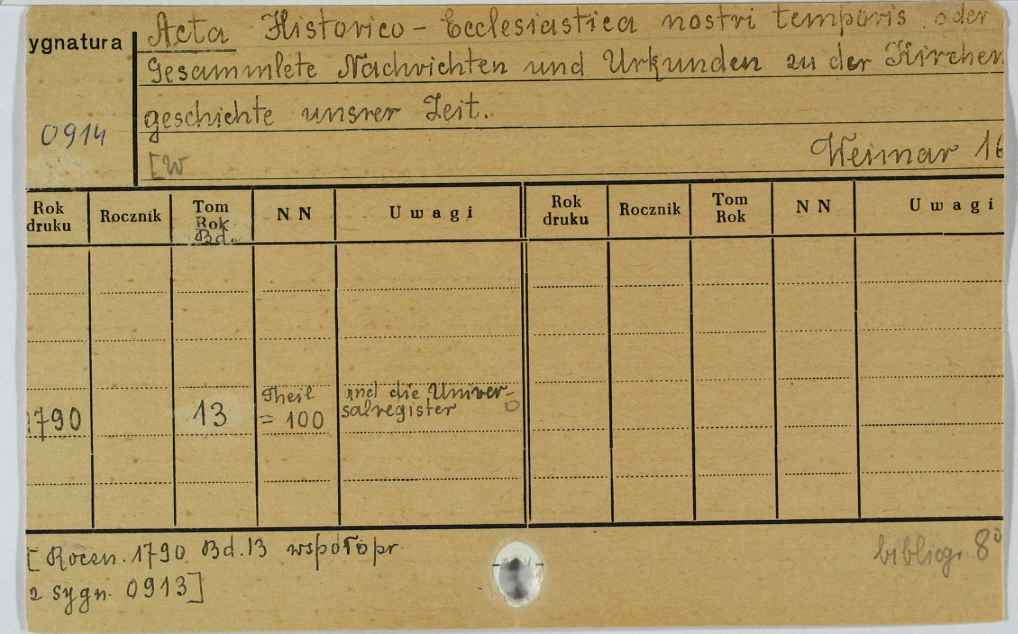 ygnatura
Acta Historico-Ecclesiastica nostri temporis oder
Gesammlete Nachrichten und Urkunden zu der Kirchen
geschichte unsrer Zeit.
0914
[W
Weimar 16
Rok druku Rocznik Tom Rok Bd. NN Uwagi Rok druku Rocznik Tom Rok NN Uwagi
1790 13 Theil = 100 und die Univer-
salregister
[Roczn. 1790 Bd.13 współopr
z sygn. 0913]
bibliogr. 8°